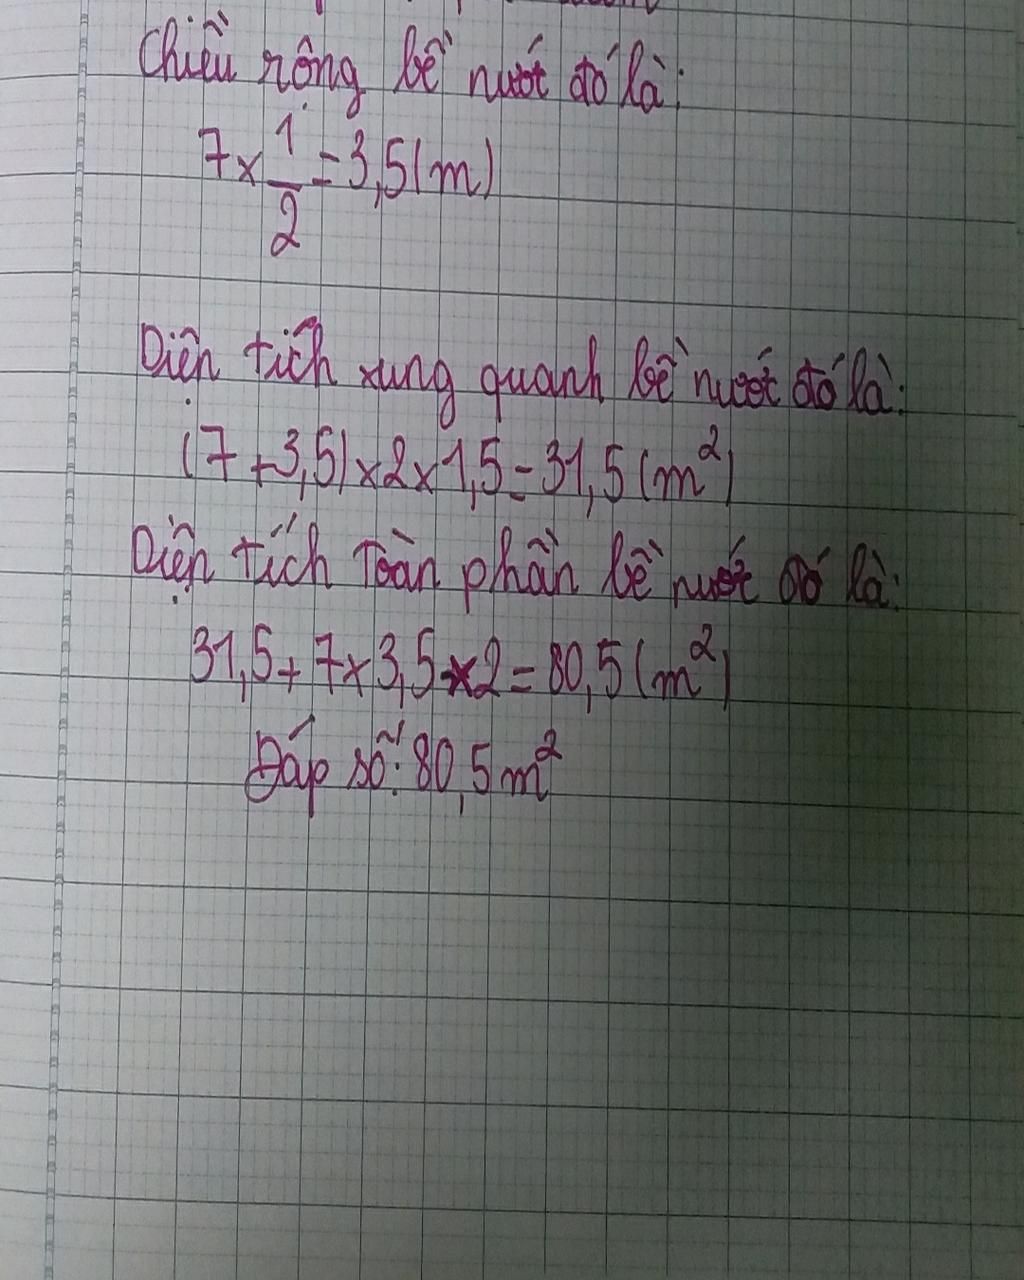 Chiều rộng bể nước đó là:
7 × 1/2 = 3,5 (m)
Diện tích xung quanh bể nước đó là:
(7 + 3,5) × 2 × 1,5 = 31,5 (m²)
Diện tích toàn phần bể nước đó là:
31,5 + 7 × 3,5 × 2 = 80,5 (m²)
Đáp số: 80,5 m²